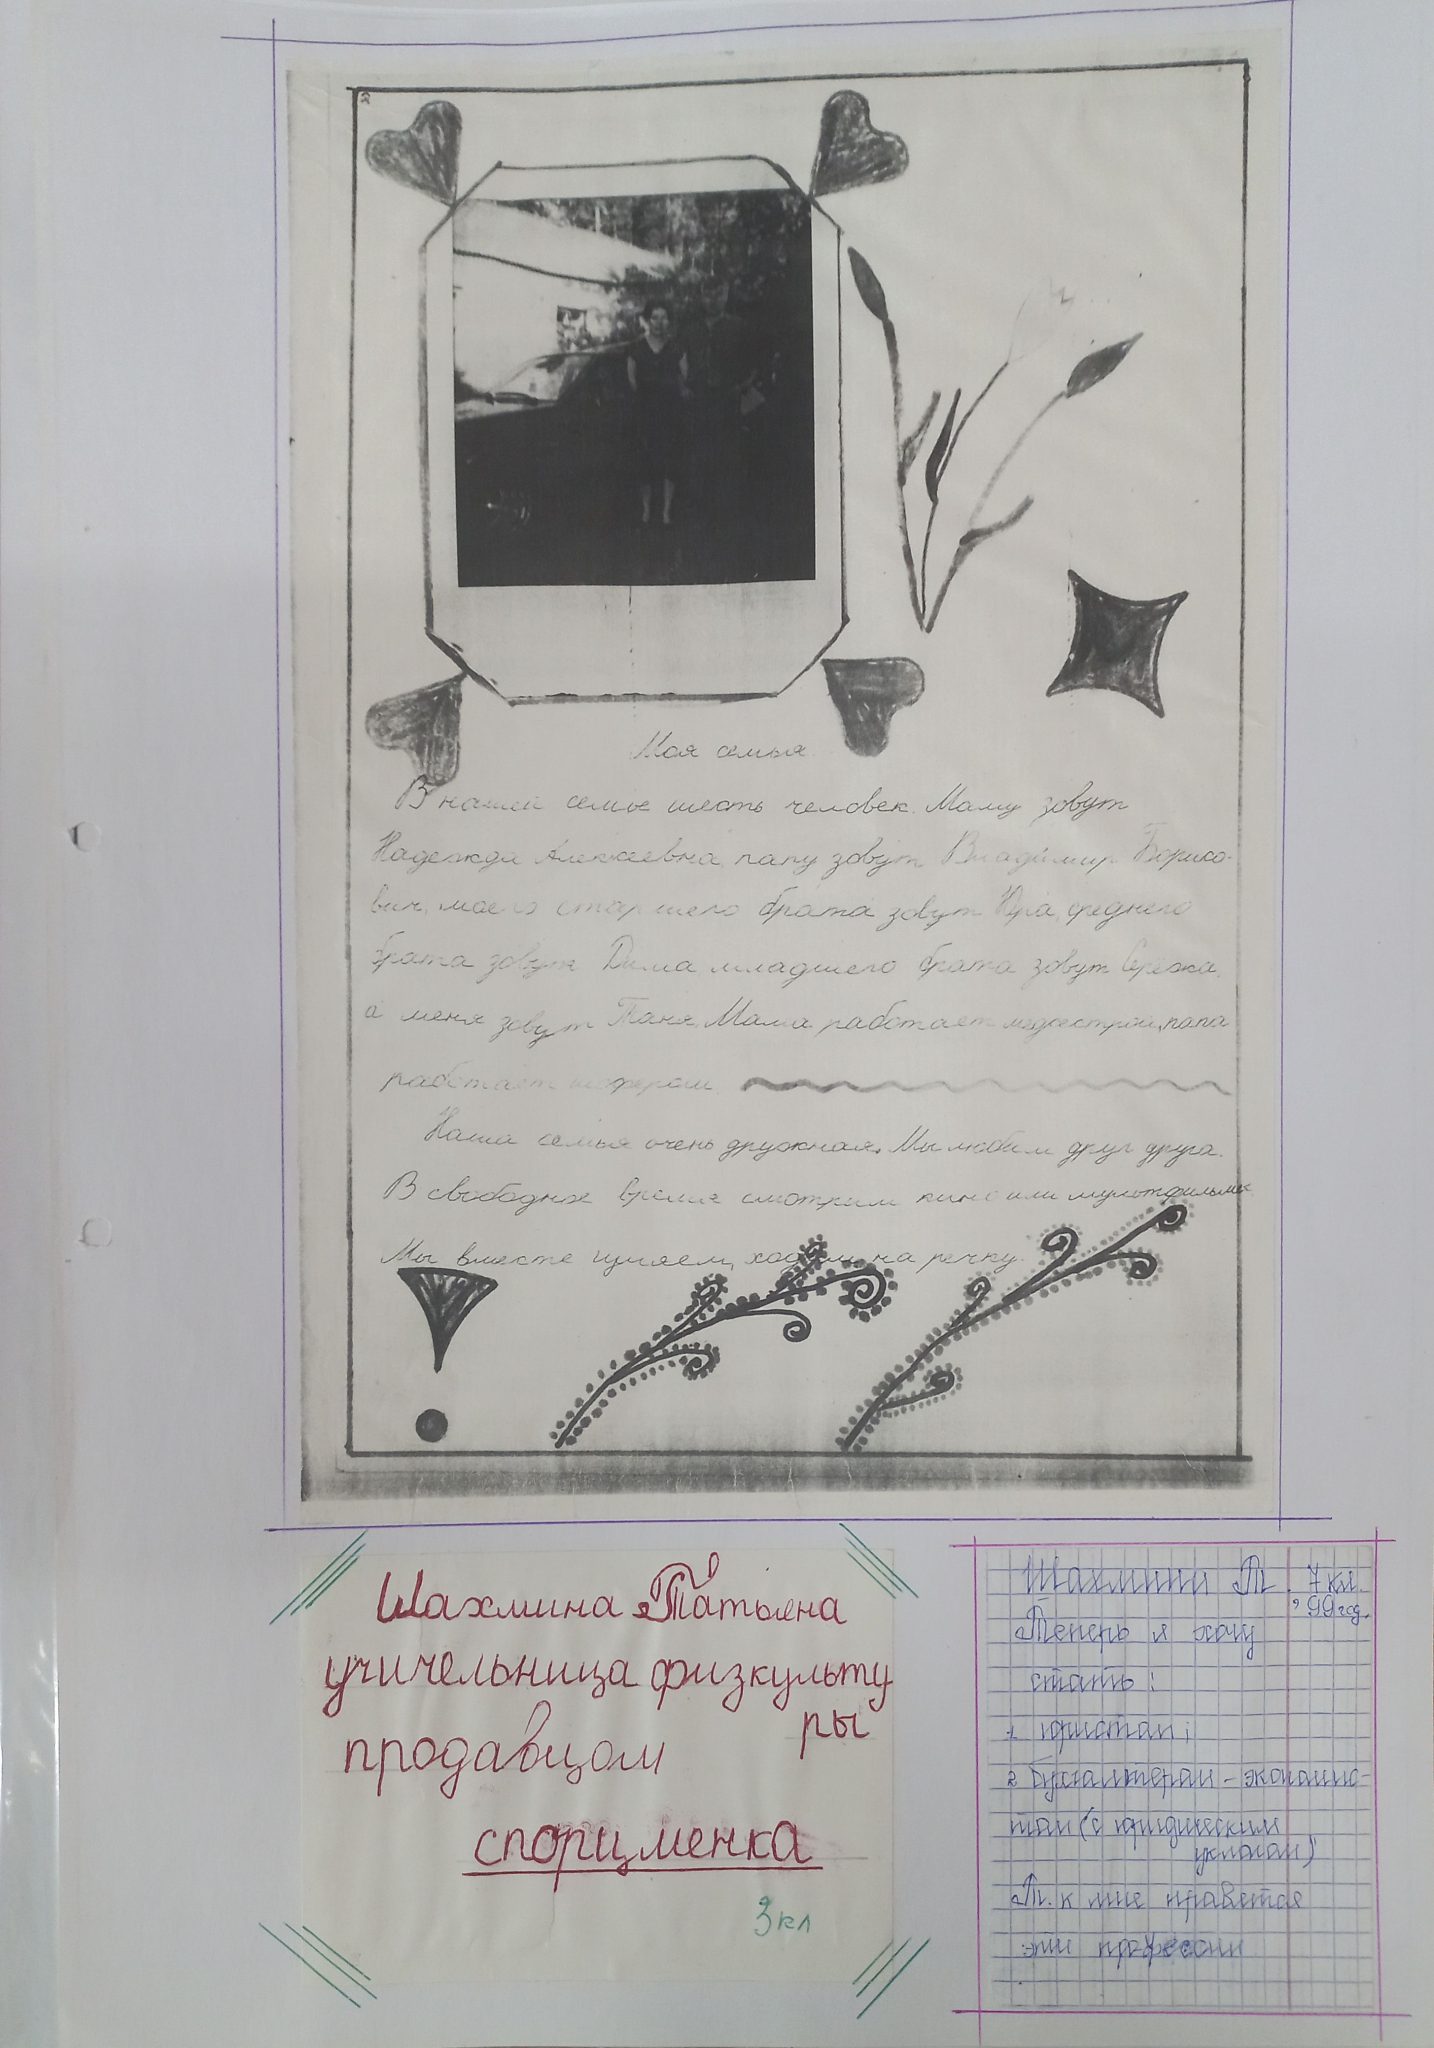 Моя семья.
В нашей семье шесть человек. Маму зовут
Надежда Алексеевна, папу зовут Владимир Борисо-
вич, моего старшего брата зовут Юра, среднего
брата зовут Дима младшего брата зовут Сережа,
а меня зовут Таня. Мама работает медсестрой, папа
работает шофером.
Наша семья очень дружная. Мы любим друг друга.
В свободное время смотрим кино или мультфильмы.
Мы вместе гуляем, ходим на речку.
Шахмина Татьяна
учичельница физкульту
ры
продавцом
спорцменка
3 кл
Шахмини Т. 7 кл.
99 год.
Теперь я хочу
стать:
1 юристом;
2 бухгалтером - экономис-
том (с юридическим
уклоном)
Т. к мне нравятся
эти профессии